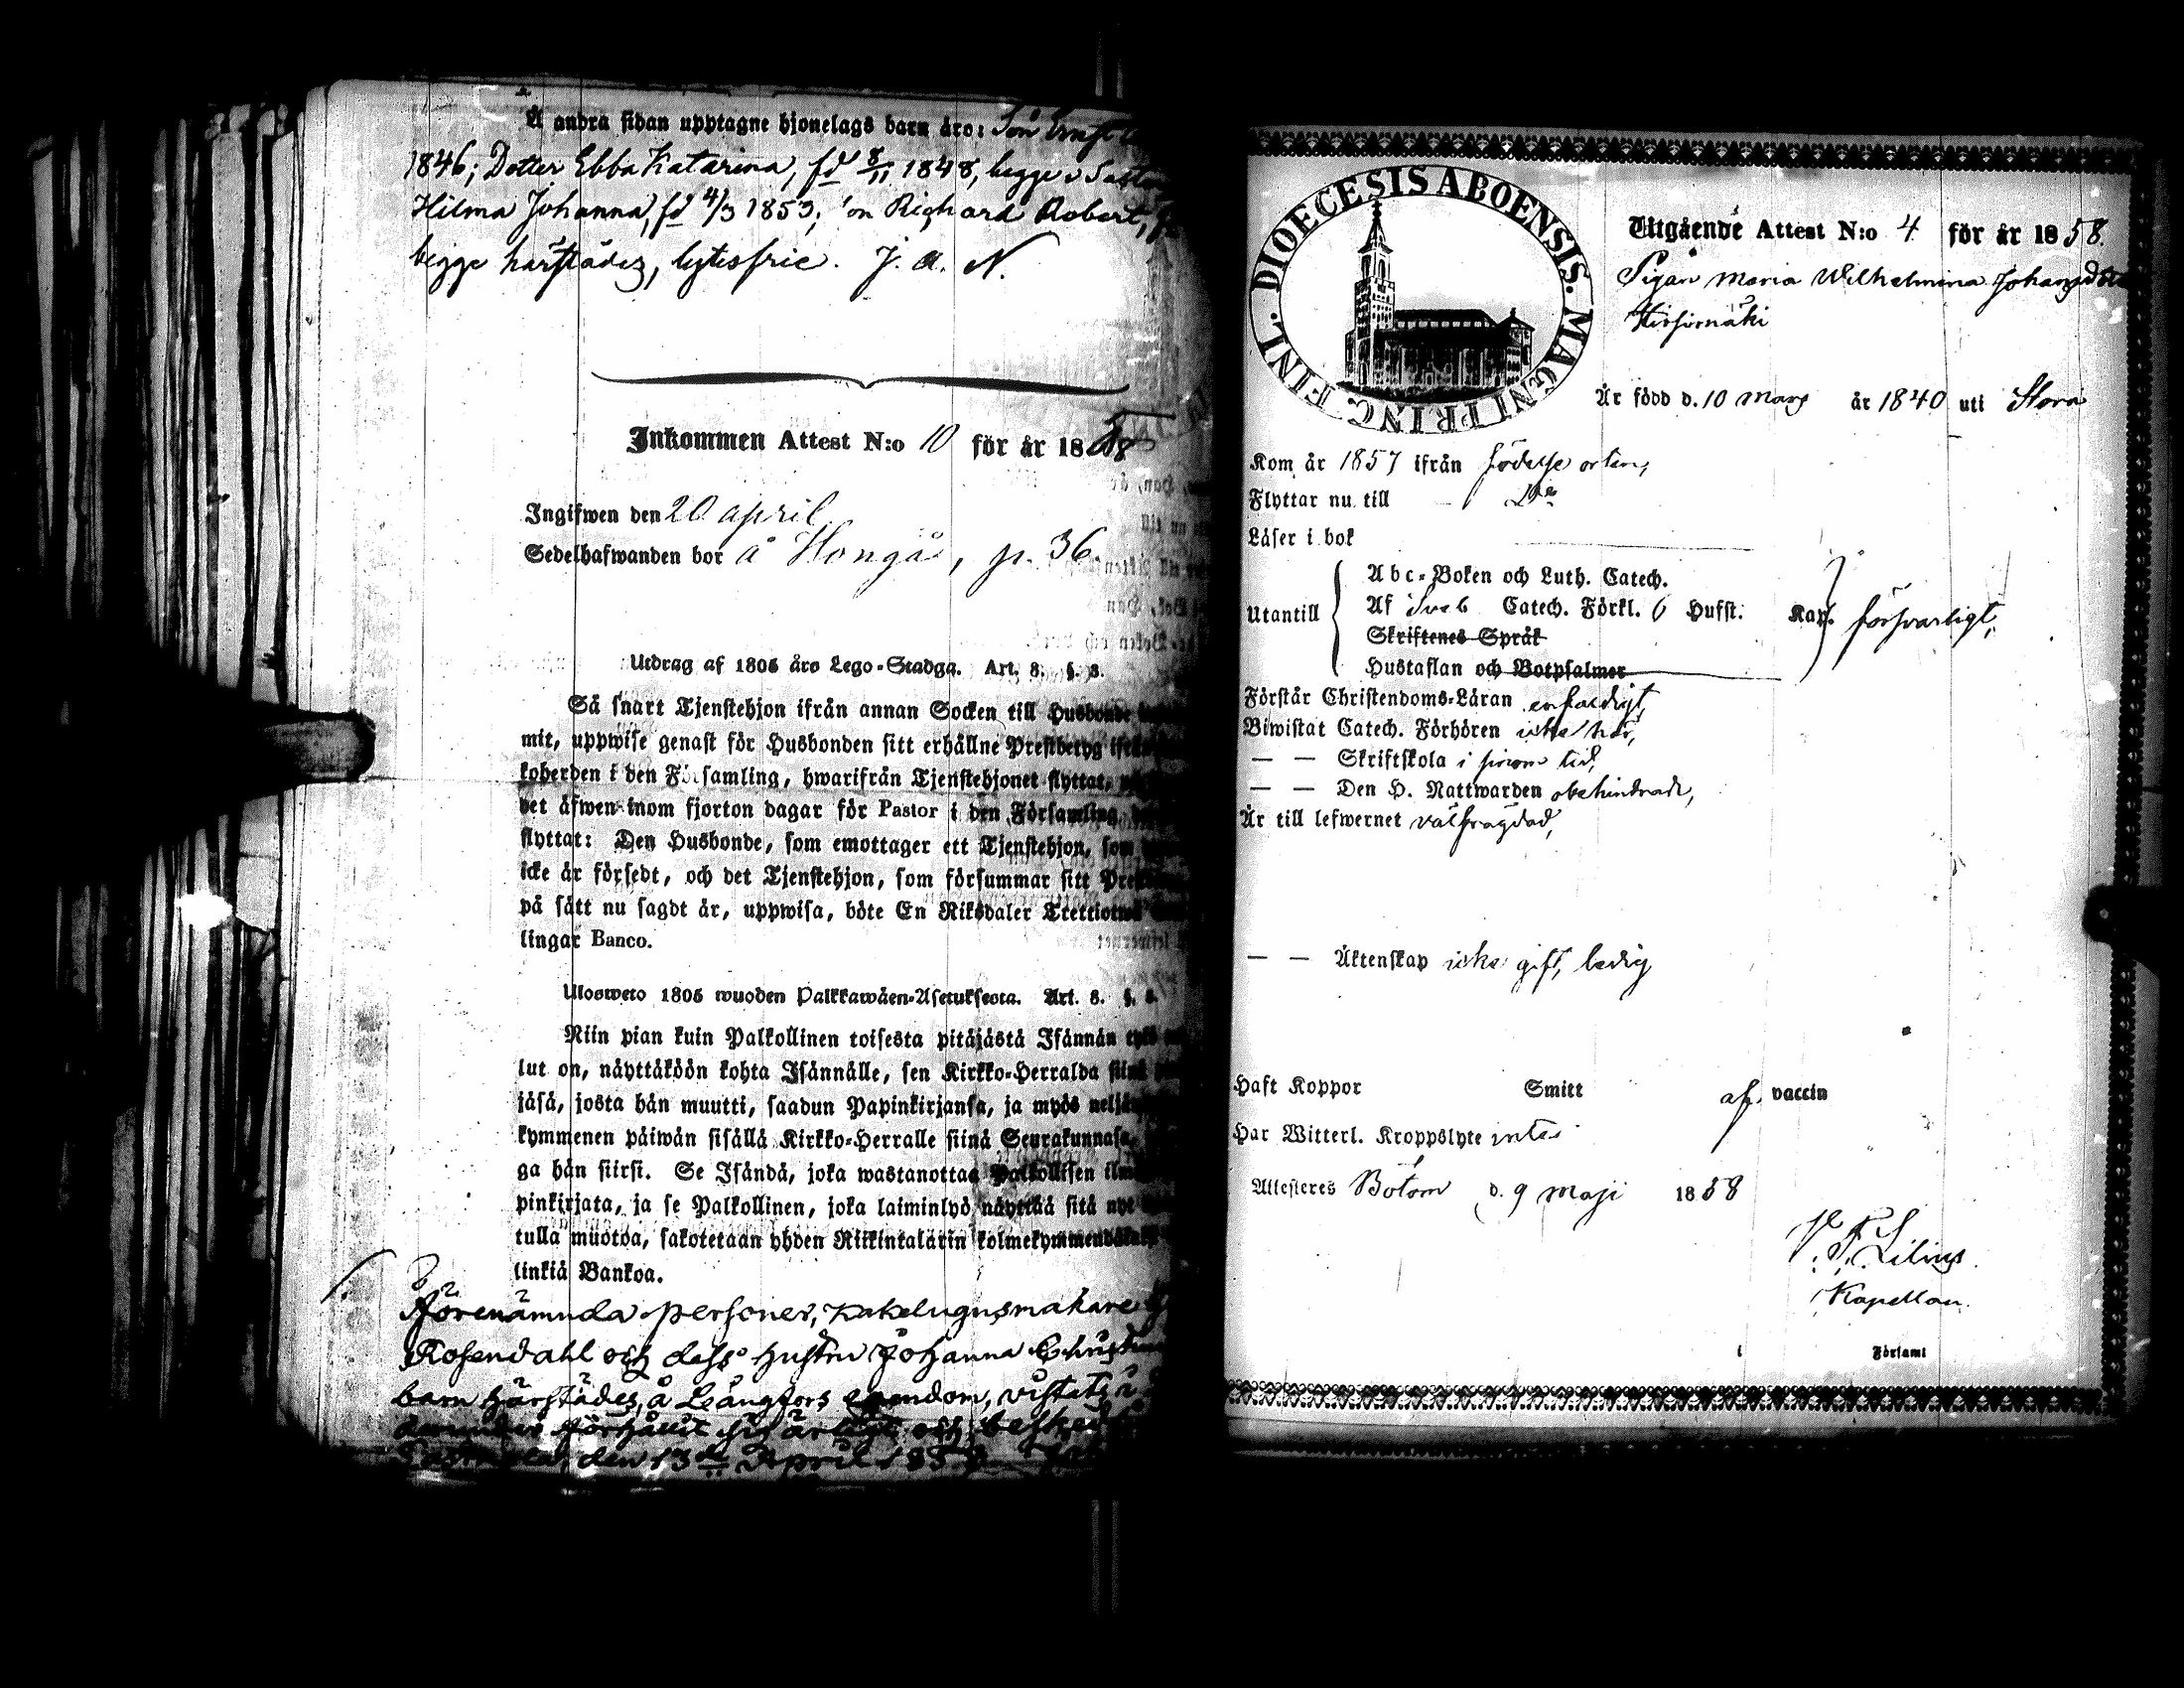 Å andra sidan upptagne hjonelags barn äro: Son Ernst
1846; Dotter Ebba Katarina, fd 8/11 1848, begge i
Hilma Johanna, fd 4/3 1853; son Righard Robert,
begge härstädes, lytesfrie. J. A. N.
Inkommen Attest N:o 10 för år 1858
Ingifwen den 20 april
Sedelhafwanden bor å Hongås, p. 36.
Utdrag af 1805 års Lego-Stadga. Art. 8. §. 8.
Så snart Tjenstehjon ifrån annan Socken till Husbonde
mit, uppwise genast för Husbonden sitt erhållne Prestbetyg
koherden i den Församling, hwarifrån Tjenstehjonet flyttat,
det äfwen inom fjorton dagar för Pastor i den Församling
flyttat: Den Husbonde, som emottager ett Tjenstehjon, som
icke är försedt, och det Tjenstehjon, som försummar sitt
på sätt nu sagdt är, uppwisa, böte En Riksdaler Trettiotwå
lingar Banco.
Ulosweto 1805 wuoden Palkkawäen-Asetuksesta. Art. 8. §. 8.
Niin pian kuin Palkollinen toisesta pitäjästä Isännän tykö
lut on, näyttäköön kohta Isännälle, sen Kirkko-Herralda siinä
jäsä, josta hän muutti, saadun Papinkirjansa, ja myös
kymmenen päiwän sisällä Kirkko-Herralle siinä Seurakunnasa,
ga hän siirsi. Se Isändä, joka wastanottaa Palkollisen
pinkirjata, ja se Palkollinen, joka laiminlyö näyttää sitä nyt
tulla muotoa, sakotetaan yhden Riikintalärin
linkiä Bankoa.
Förenämnda personer, kakelugnsmakare
Rosendahl och dess hustru Johanna
barn härstädes, å Långfors egendom, vistats
förhållit sig ärligt och
den 13de April 1858
DIOECESIS ABOENSIS. MAGNI PRINC. FINL.
Utgående Attest N:o 4 för år 1858.
Pigan Maria Wilhelmina Johansdotter
Är född d. 10 Mars år 1840 uti Stora
Kom år 1857 ifrån födelse orten,
Flyttar nu till Do
Läser i bok
Utantill
Abc-Boken och Luth. Catech.
Af Sveb Catech. Förkl. 6 Hufst. Kap. försvarligt,
Skriftenes Språk
Hustaflan och Botpsalmer
Förstår Christendoms-Läran enfaldigt,
Biwistat Catech. Förhören icke här,
— — Skriftskola i sinom tid,
— — Den H. Nattwarden obehindrad,
Är till lefwernet välfrägdad,
— — Äktenskap icke gift, ledig
Haft Koppor Smitt af vaccin
Har Witterl. Kroppslyte intet
Attesteres Bötom d. 9 Maji 1858
Lilius
Kapellan.
i Församl